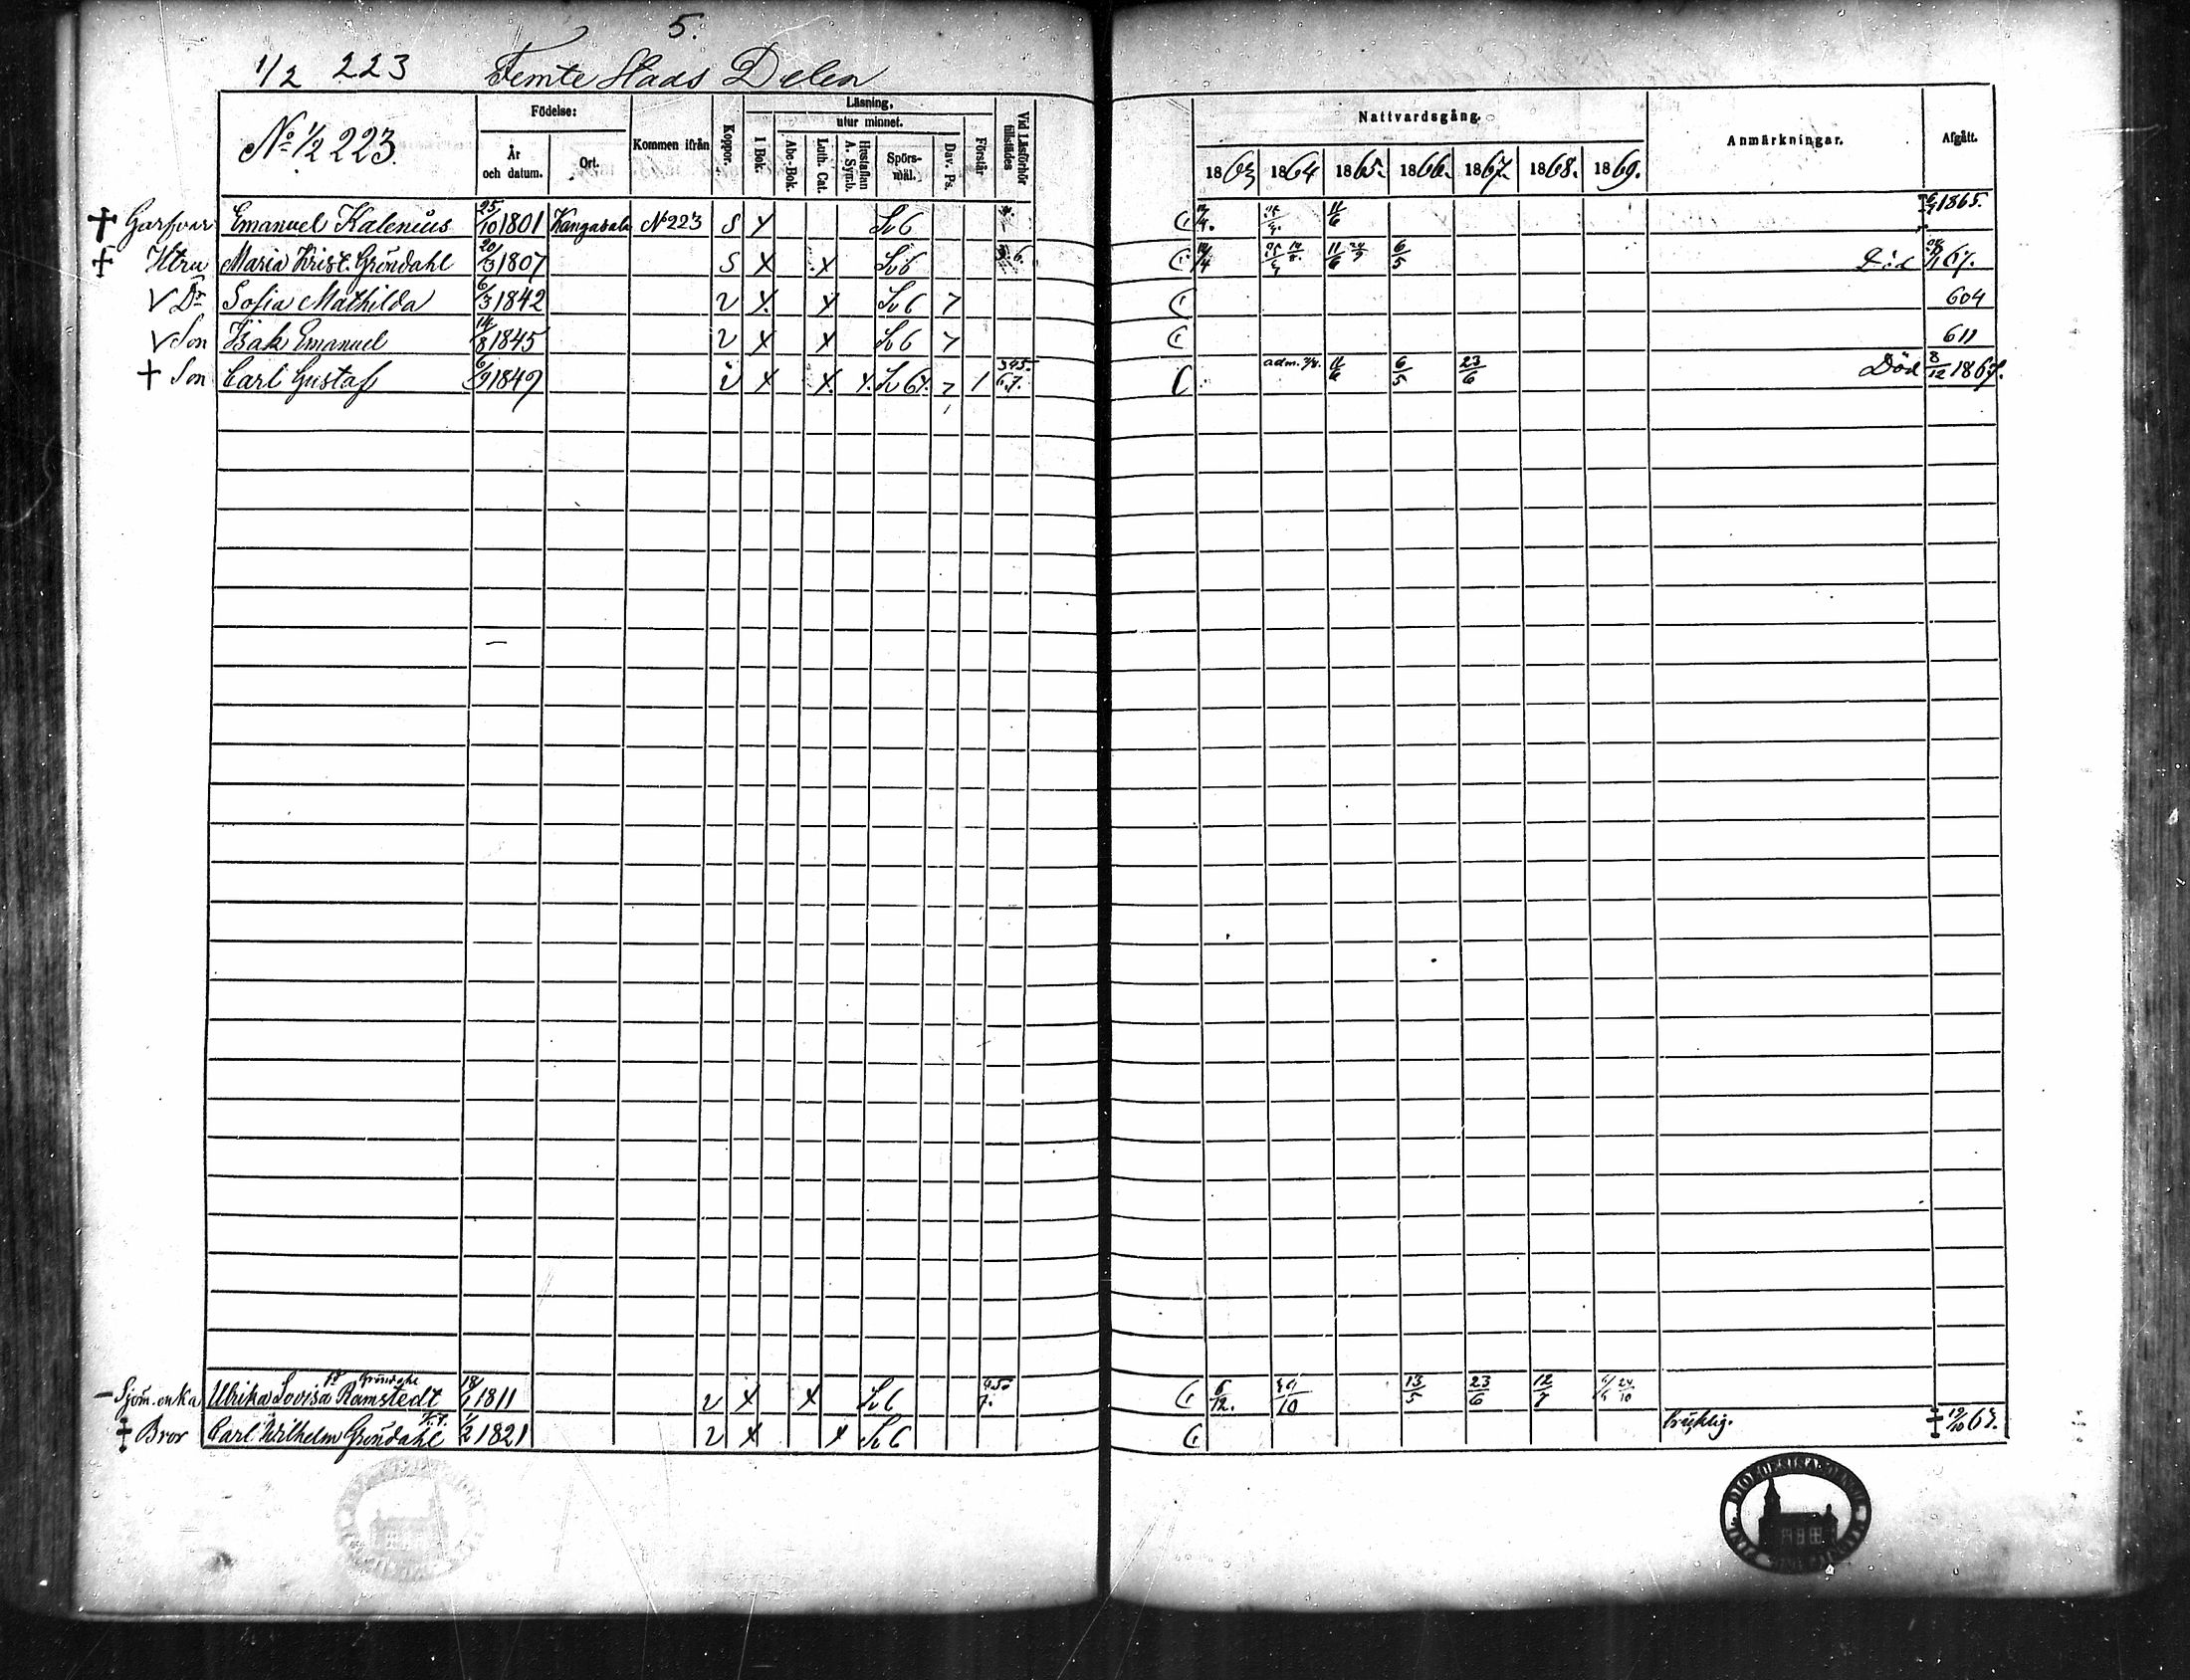 5.
1/2 223 Femte Stads Delen
No 1/2 223.
Födelse:
År och datum.
Ort.
Kommen ifrån
Koppor.
Läsning,
I Bok.
utur minnet.
Abc-Bok.
Luth. Cat.
Hustaflan A. Symb.
Spörsmål.
Dav. Ps.
Förstår
Vid Läsförhör tillstädes
Nattvardsgång.
1863 1864 1865. 1866. 1867. 1868. 1869.
Anmärkningar.
Afgått.
† Garfvar Emanuel Kalenius 25/10 1801 Kangasala No 223 S X Sv 6 11/6 1865.
† Htru Maria Krist. Gröndahl 20/3 1807 S X X Sv 6 11/6 6/5 Död 67.
V Dr Sofia Mathilda 6/3 1842 V X X Sv 6 7 604
V Son Isak Emanuel 14/8 1845 V X X Sv 6 7 611
† Son Carl Gustaf 6/9 1849 V X X X. Sv 6 X. 7 1 345. 6.7. adm. 11/6 6/5 23/6 Död 8/12 1867.
fd Gröndahl
– Sjöm. enka Ulrika Lovisa Ramstedt 18/1 1811 V X X Sv 6 7. 6/12. 10 13/5 23/6 12/7 24/10
† Bror Carl Wilhelm Gröndahl 1/2 1821 V X X Sv 6 bräcklig. †